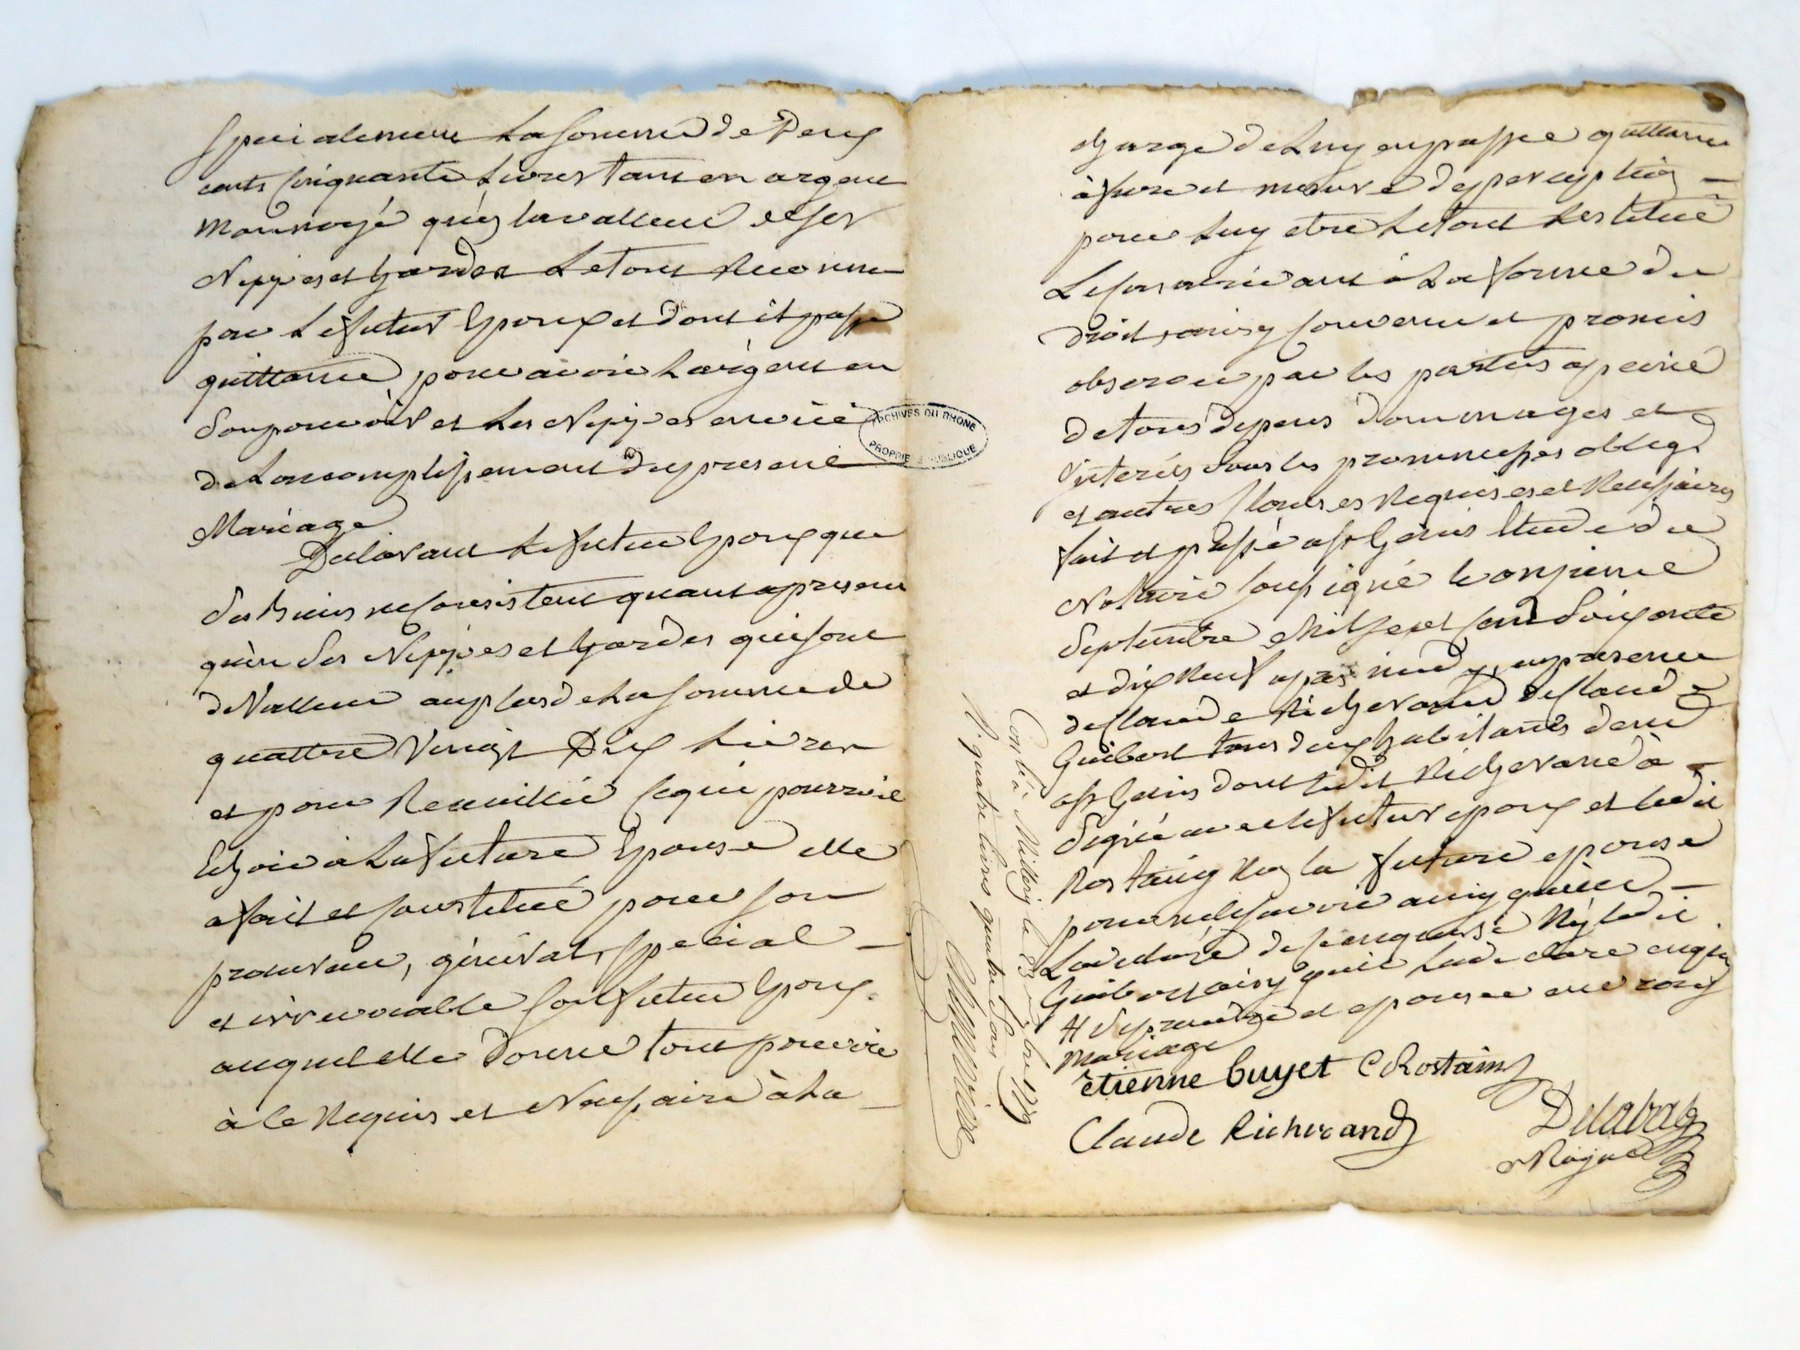 specialement La somme de Deux
cents cinquante Livres tant en argent
monnoyé qu'en la valleur de ses
Nippes et hardes Le tout Reconnu
par Le futur Epoux et dont il passe
quittance pour avoir L'argent en
son pouvoir et Les Nippes en vüe
de L'accomplissement du present
Mariage
Declarant Le futur Epoux que
ses biens ne consistent quant a present
qu'en ses Nippes et hardes qui sont
de Valleur au plus de La somme de
quattre Vingt Dix Livres
et pour Recuillir ce qui pourroit
Echoir à La future Epouse elle
a fait et constitué pour son
procureur, général, special
et irrevocable son futur Epoux
auquel elle donne tout pouvoir
à ce Requis et Necessaire à La
charge de Luy en passer quittance
à fure et mesure de perception
pour Luy etre Le tout Restitué
Le cas arrivant à La forme du
droit, ainsy convenu et promis
observer par les parties a peine
de tous depens dommages et
interêts sous les promesses oblig.
et autres clauses Requises et Necessaires
fait et passé a Etude du
Notaire soussigné le onzieme
septembre Mil sept cent soixante
et dix neuf apres midy, en presence
de Claude Richerand et Claude
Guibert tous deux habitants dud
dont ledit Richerand à
signé avec le futur epoux et ledit
Rostaing Non la future epouse
pour ne sçavoir ainsy qu'elle
L'a declaré de ce enquise Ny ledit
Guibert ainsy qu'il L'a declaré enquis
# se prendre et epouser en vray
mariage
étienne buyet C Rostaing
Claude Richerand
Delabal
Royal
Con.lé à Millery le 1779
R. quatre livres quatre sous
ARCHIVES DU RHONE
PROPRIETE PUBLIQUE